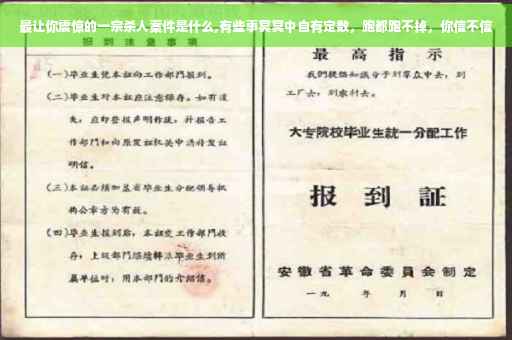 最让你震惊的一宗杀人案件是什么,有些事冥冥中自有定数，跑都跑不掉，你信不信
报到注意事项
(一)毕业生凭本证向工作部门报到。
(二)毕业生对本证应注意保存。如有遗
失，应即登报声明作废，并报告工
作部门和向原发证机关申请补发证
明信。
(三)本证必须加盖省毕业生分配领导机
构公章方为有效。
(四)毕业生报到后，本证交工作部门收
存；上级部门继续转派毕业生到所
属单位时，用本部门的介绍信。
最高指示
我们提倡知识分子到群众中去，到
工厂去，到农村去。
大专院校毕业生统一分配工作
报到証
安徽省革命委員会制定
一九 年 月 日